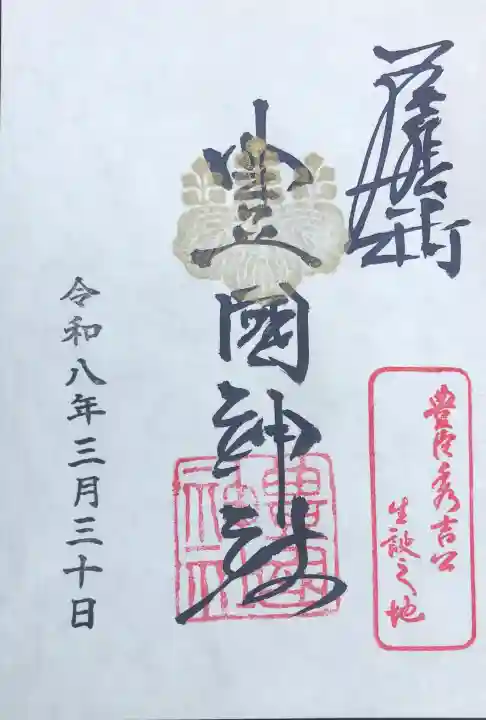 豊國神社
豊臣秀吉公
生誕之地
令和八年三月三十日